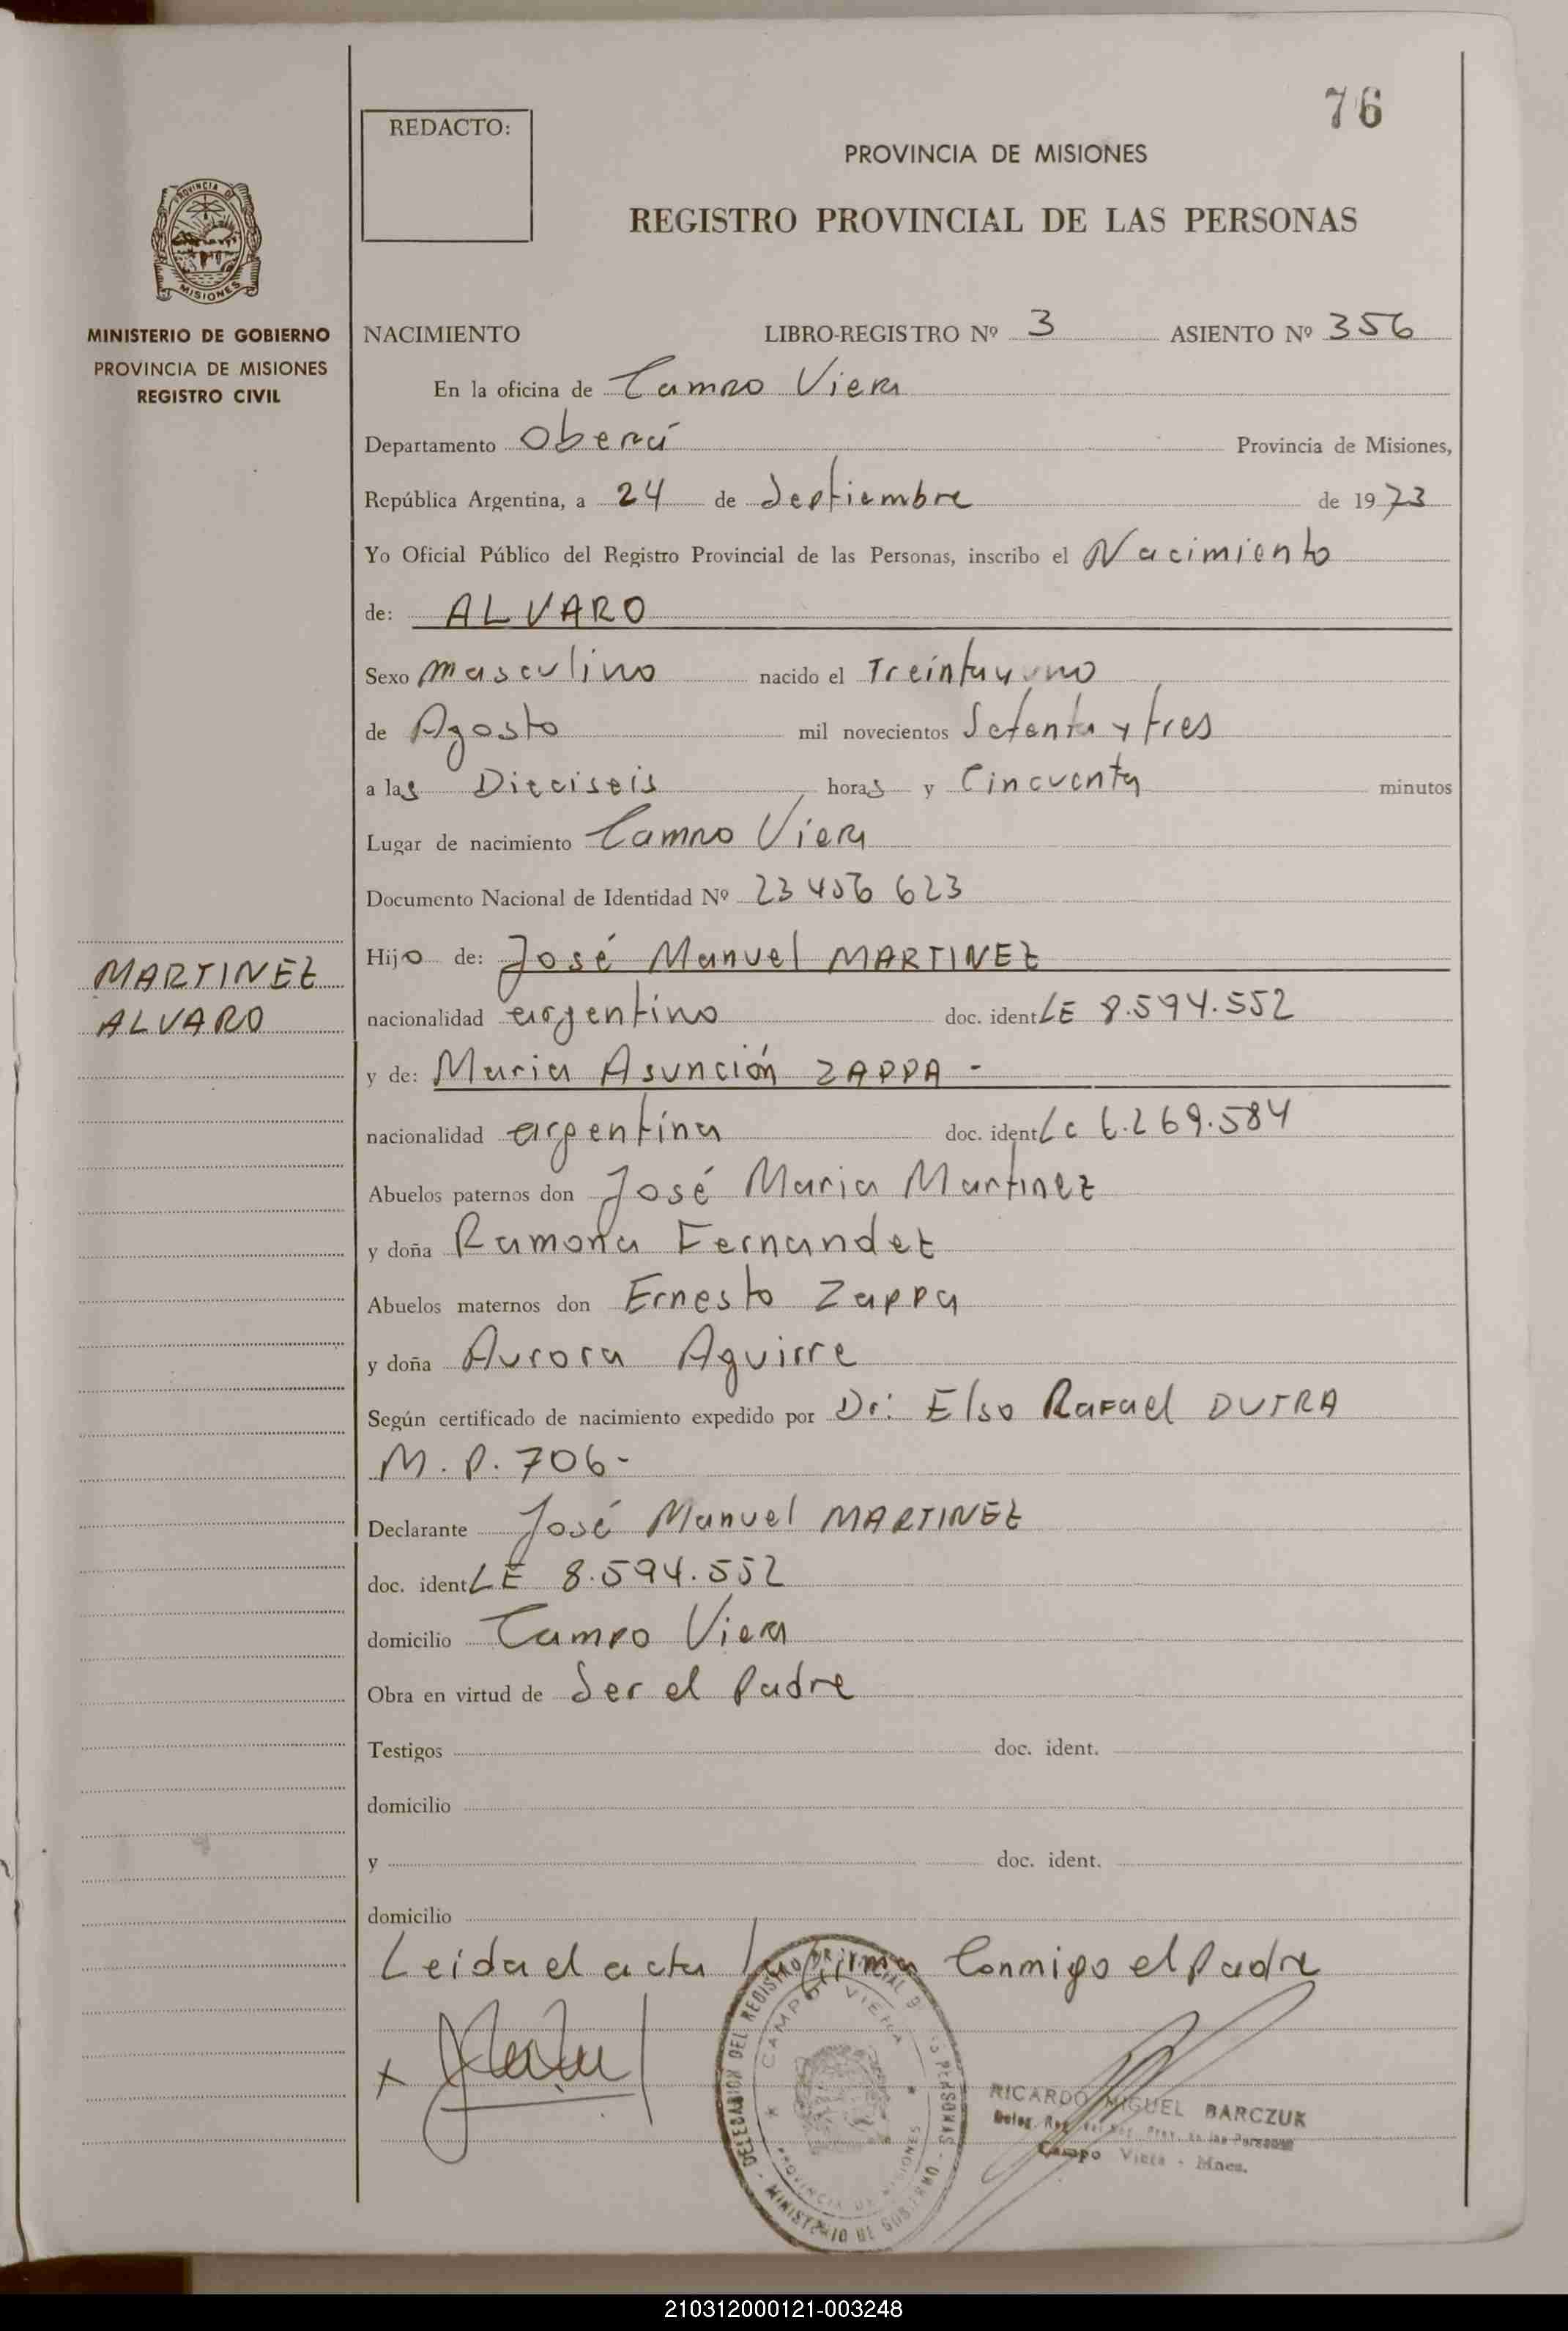 76
REDACTO:
PROVINCIA DE MISIONES
REGISTRO PROVINCIAL DE LAS PERSONAS
PROVINCIA DE
MISIONES
MINISTERIO DE GOBIERNO
PROVINCIA DE MISIONES
REGISTRO CIVIL
NACIMIENTO LIBRO-REGISTRO Nº 3 ASIENTO Nº 356
En la oficina de Campo Viera
Departamento Oberá Provincia de Misiones,
República Argentina, a 24 de Septiembre de 1973
Yo Oficial Público del Registro Provincial de las Personas, inscribo el Nacimiento
de: ALVARO
Sexo masculino nacido el Treinta y uno
de Agosto mil novecientos Setenta y tres
a las Dieciseis horas y Cincuenta minutos
Lugar de nacimiento Campo Viera
Documento Nacional de Identidad Nº 23 456 623
MARTINEZ
ALVARO
Hijo de: José Manuel MARTINEZ
nacionalidad argentino doc. ident LE 8.594.552
y de: Maria Asunción ZAPPA -
nacionalidad argentina doc. ident Lc 6.269.584
Abuelos paternos don José Maria Martinez
y doña Ramona Fernandez
Abuelos maternos don Ernesto Zappa
y doña Aurora Aguirre
Según certificado de nacimiento expedido por Dr: Elso Rafael DUTRA
M.P. 706-
Declarante José Manuel MARTINEZ
doc. ident LE 8.594.552
domicilio Campo Viera
Obra en virtud de Ser el Padre
Testigos doc. ident.
domicilio
y doc. ident.
domicilio
Leida el acta la firma Conmigo el Padre
x
DELEGACION DEL REGISTRO PROVINCIAL DE LAS PERSONAS - MINISTERIO DE GOBIERNO -
CAMPO VIERA
PROVINCIA DE MISIONES
RICARDO MIGUEL BARCZUK
Deleg. Reg. Prov. de las Personas
Campo Viera - Mnes.
210312000121-003248